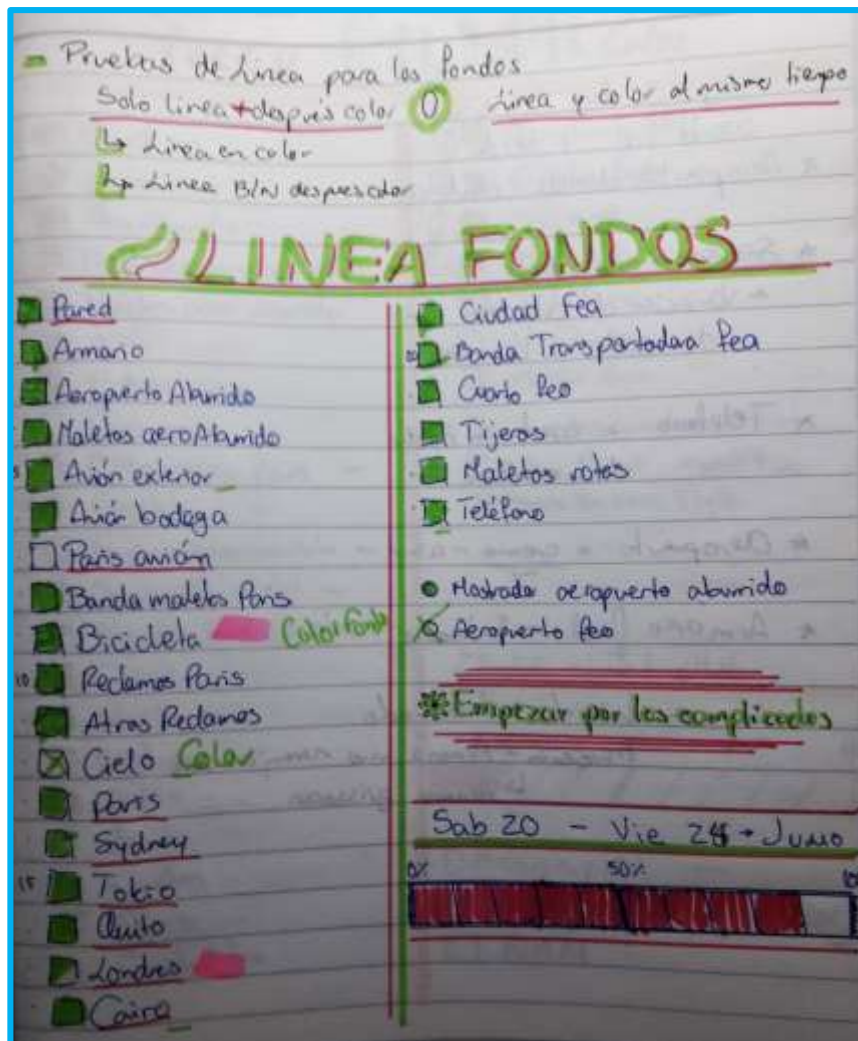 Pruebas de Linea para los Fondos
Solo linea + después color O Linea y color al mismo tiempo
↳ Linea en color
↳ Linea B/N despues color
LINEA FONDOS
Pared
Armario
Aeropuerto Aburrido
Maletas aeroAburrido
5 Avión exterior
Avión bodega
Paris avión
Banda maletas Paris
Bicicleta Color Fondo
10 Reclamos Paris
Atras Reclamos
Cielo Color
Paris
Sydney
15 Tokio
Quito
Londres
Cairo
Ciudad Fea
Banda Transportadora fea
Cuarto feo
Tijeras
Maletas rotas
Teléfono
Mostrador aeropuerto aburrido
Aeropuerto feo
*Empezar por los complicados
Sab 20 - Vie → Junio
0% 50%